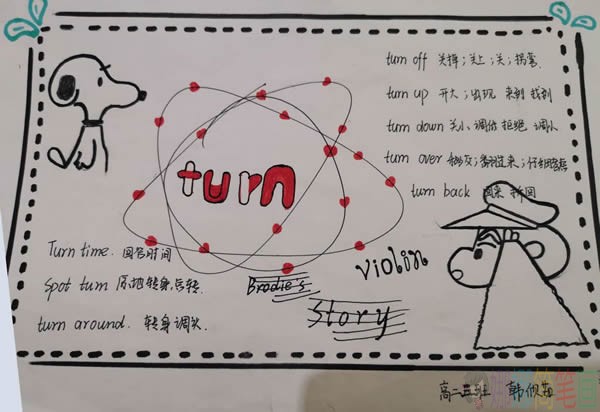 turn off 关掉；关上；关；拐弯
turn up 开大；出现 来到 找到
turn down 关小 调低 拒绝 调头
turn over 翻过来；仔细考虑
turn back 回来 折回
turn
Turn time. 回合时间
Spot turn 原地转身
turn around. 转身 调头
Brodie's
Story
violin
高二三班 韩